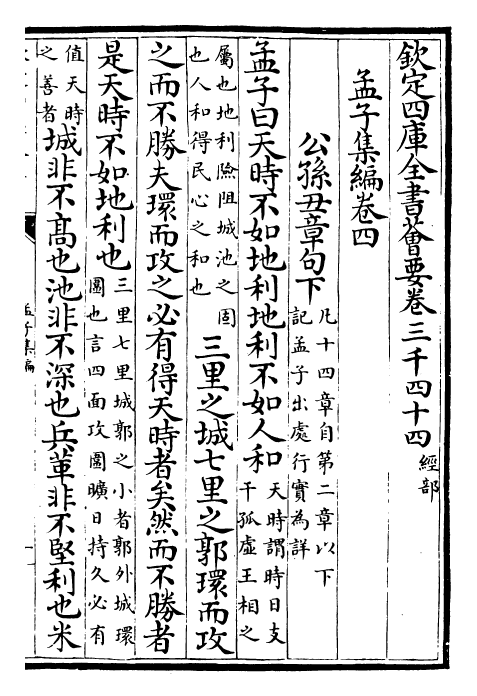 欽定四庫全書薈要卷三千四十四 經部
孟子集編卷四
公孫丑章句下 凡十四章自第二章以下
記孟子出處行實為詳
孟子曰天時不如地利地利不如人和 天時謂時日支
干孤虛王相之
屬也地利險阻城池之固
也人和得民心之和也 三里之城七里之郭環而攻
之而不勝夫環而攻之必有得天時者矣然而不勝者
是天時不如地利也 三里七里城郭之小者郭外城環
圍也言四面攻圍曠日持久必有
值天時
之善者 城非不髙也池非不深也兵革非不堅利也米
孟子集編
一